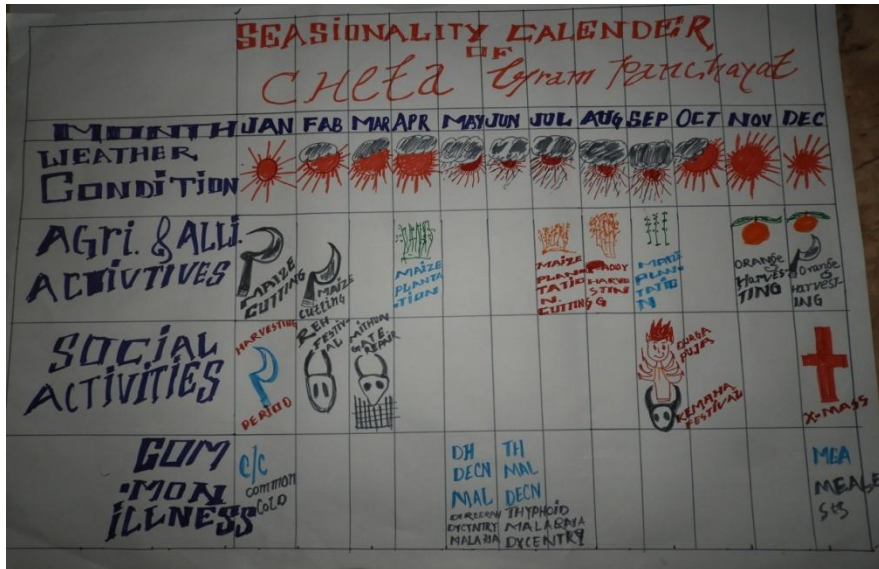 SEASIONALITY CALENDER
OF
CHETA Gram Panchayat
MONTH JAN FAB MAR APR MAY JUN JUL AUG SEP OCT NOV DEC
WEATHER
CONDITION
AGRI. & ALLI.
ACTIVTIVES
MAIZE
CUTTING
MAIZE
Cutting
MAIZE
PLANTA
-TION
MAIZE
PLAN-
TATIO
N.
CUTTING
PADDY
HARVE
STIN
G
MAIZ
PLAN-
TATIO
N
ORANGE
Harves-
TING
Orange
harvest-
ING
SOCIAL
ACTIVITIES
HARVESTING
PERIOD
REH
FESTIV-
AL
MITHUN
GATE
REPAIR
PUJA
KEMAHA
FESTIVAL
X-MASS
COM
-MON
ILLNESS
C/C
common
COLD
DH
DECN
MAL
DYCTNTRY
MALARIA
TH
MAL
DECN
THYPHOID
MALARAYA
DYCENTRY
MEA
MEASE